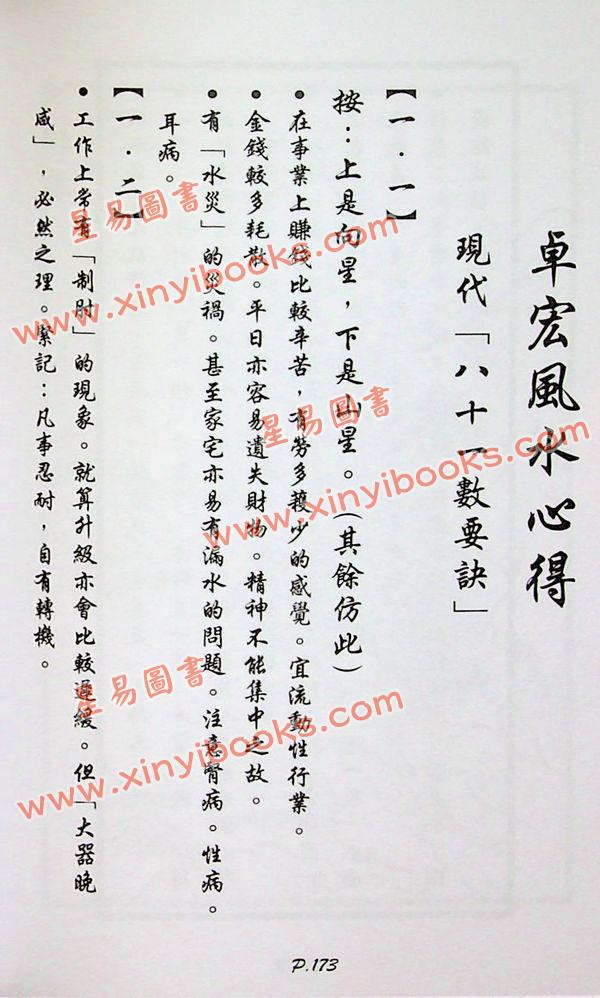 卓宏風水心得
現代「八十一數要訣」
【一．一】
按：上是向星，下是山星。（其餘仿此）
•在事業上賺錢比較辛苦，有勞多穫少的感覺。宜流動性行業。
•金錢較多耗散。平日亦容易遺失財物。精神不能集中之故。
•有「水災」的災禍。甚至家宅亦易有漏水的問題。注意腎病。性病。
耳病。
【一．二】
•工作上常有「制肘」的現象。就算升級亦會比較遲緩。但「大器晚
成」，必然之理。緊記：凡事忍耐，自有轉機。
P.173
星易圖書
www.xinyibooks.com
星易圖書
www.xinyibooks.com
星易圖書
www.xinyibooks.com